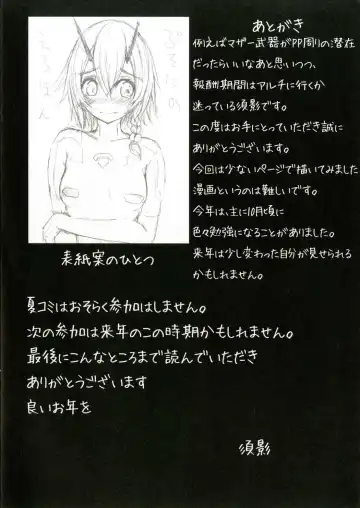 あとがき
例えばマザー武器がPP周りの潜在
だったらいいなあと思いつつ、
報酬期間はアルチに行くか
迷っている須影です。
この度はお手にとっていただき誠に
ありがとうございます。
今回は少ないページで描いてみました
漫画というのは難しいです。
今年は、主に10月頃に
色々勉強になることがありました。
来年は少し変わった自分が見せられる
かもしれません。
表紙案のひとつ
夏コミはおそらく参加はしません。
次の参加は来年のこの時期かもしれません。
最後にこんなところまで読んでいただき
ありがとうございます
良いお年を
須影